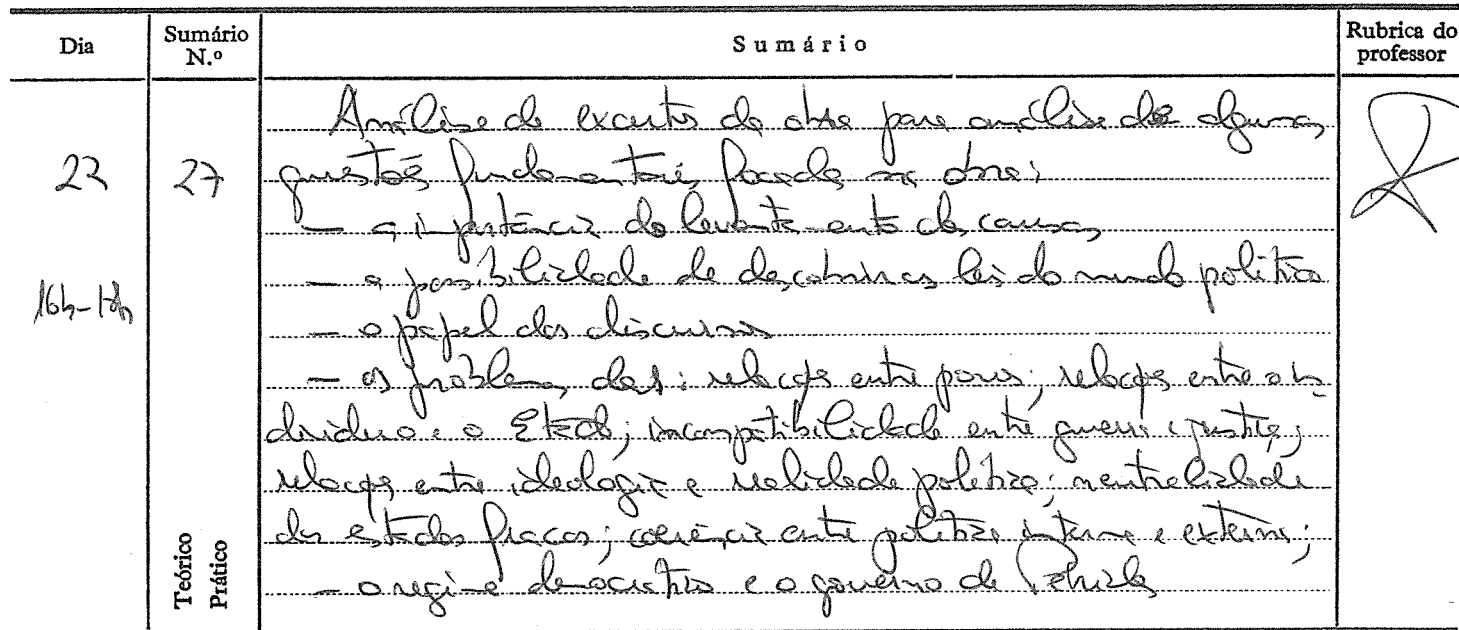 Dia Sumário N.º Sumário Rubrica do professor
Análise de excertos da obra para análise de algumas
22 27 questões fundamentais focadas na obra:
— a importância do levantamento das causas
16h-18h — a possibilidade de descobrir as leis do mundo político
— o papel dos discursos
— os problemas das: relações entre povos; relações entre o in
divíduo e o Estado; incompatibilidade entre guerra e justiça;
relações entre ideologia e realidade política; neutralidade
dos estados fracos; coerência entre política interna e externa;
Teórico Prático — o regime democrático e o governo de Péricles